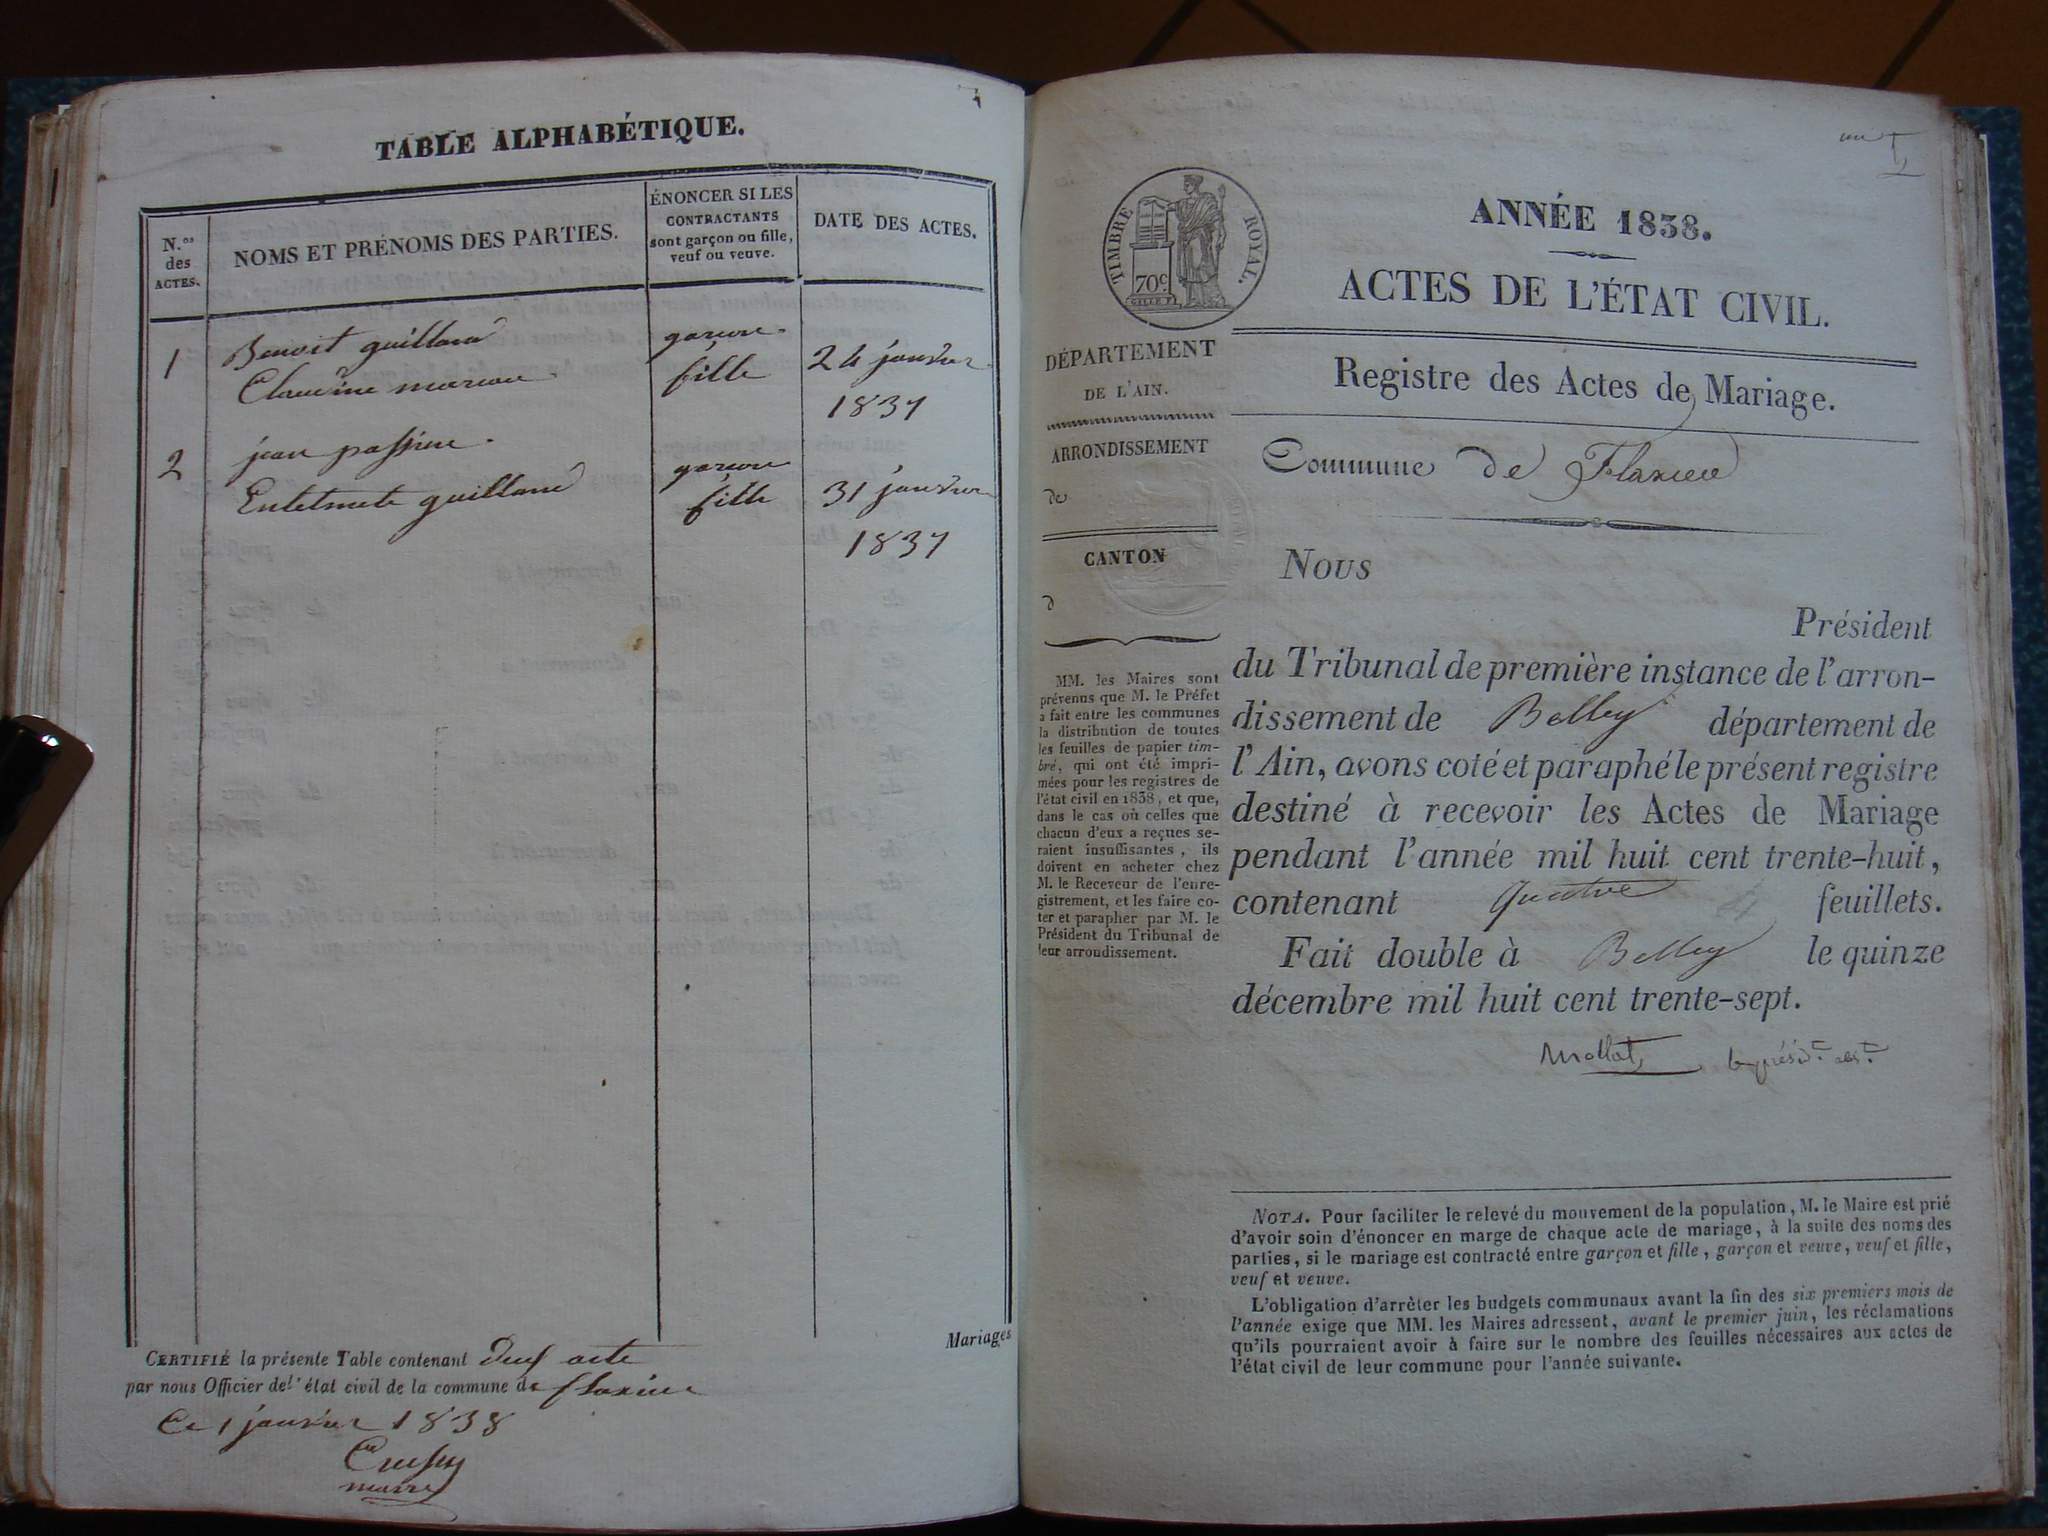 TABLE ALPHABÉTIQUE.
N.os des ACTES.
NOMS ET PRÉNOMS DES PARTIES.
ÉNONCER SI LES
CONTRACTANTS
sont garçon ou fille,
veuf ou veuve.
DATE DES ACTES.
1
Benoit guilland
garcon
24 janvier
Claudine
fille
1837
2
jean
garcon
31 janvier
guilland
fille
1837
Mariages
CERTIFIÉ la présente Table contenant deux acte
par nous Officier de l'état civil de la commune de flaxieu
Ce 1 janvier 1838
maire
ANNÉE 1838.
ACTES DE L'ÉTAT CIVIL.
TIMBRE ROYAL.
70c
DÉPARTEMENT
DE L'AIN.
ARRONDISSEMENT
de
CANTON
d
Registre des Actes de Mariage.
Commune de Flaxieu
MM. les Maires sont
prévenus que M. le Préfet
a fait entre les communes
la distribution de toutes
les feuilles de papier tim-
bré, qui ont été impri-
mées pour les registres de
l'état civil en 1838, et que,
dans le cas où celles que
chacun d'eux a reçues se-
raient insuffisantes, ils
doivent en acheter chez
M. le Receveur de l'enre-
gistrement, et les faire co-
ter et parapher par M. le
Président du Tribunal de
leur arrondissement.
Nous
Président
du Tribunal de première instance de l'arron-
dissement de Belley département de
l'Ain, avons coté et paraphé le présent registre
destiné à recevoir les Actes de Mariage
pendant l'année mil huit cent trente-huit,
contenant quatre feuillets.
Fait double à Belley le quinze
décembre mil huit cent trente-sept.
Mollat
NOTA. Pour faciliter le relevé du mouvement de la population, M. le Maire est prié
d'avoir soin d'énoncer en marge de chaque acte de mariage, à la suite des noms des
parties, si le mariage est contracté entre garçon et fille, garçon et veuve, veuf et fille,
veuf et veuve.
L'obligation d'arrêter les budgets communaux avant la fin des six premiers mois de
l'année exige que MM. les Maires adressent, avant le premier juin, les réclamations
qu'ils pourraient avoir à faire sur le nombre des feuilles nécessaires aux actes de
l'état civil de leur commune pour l'année suivante.